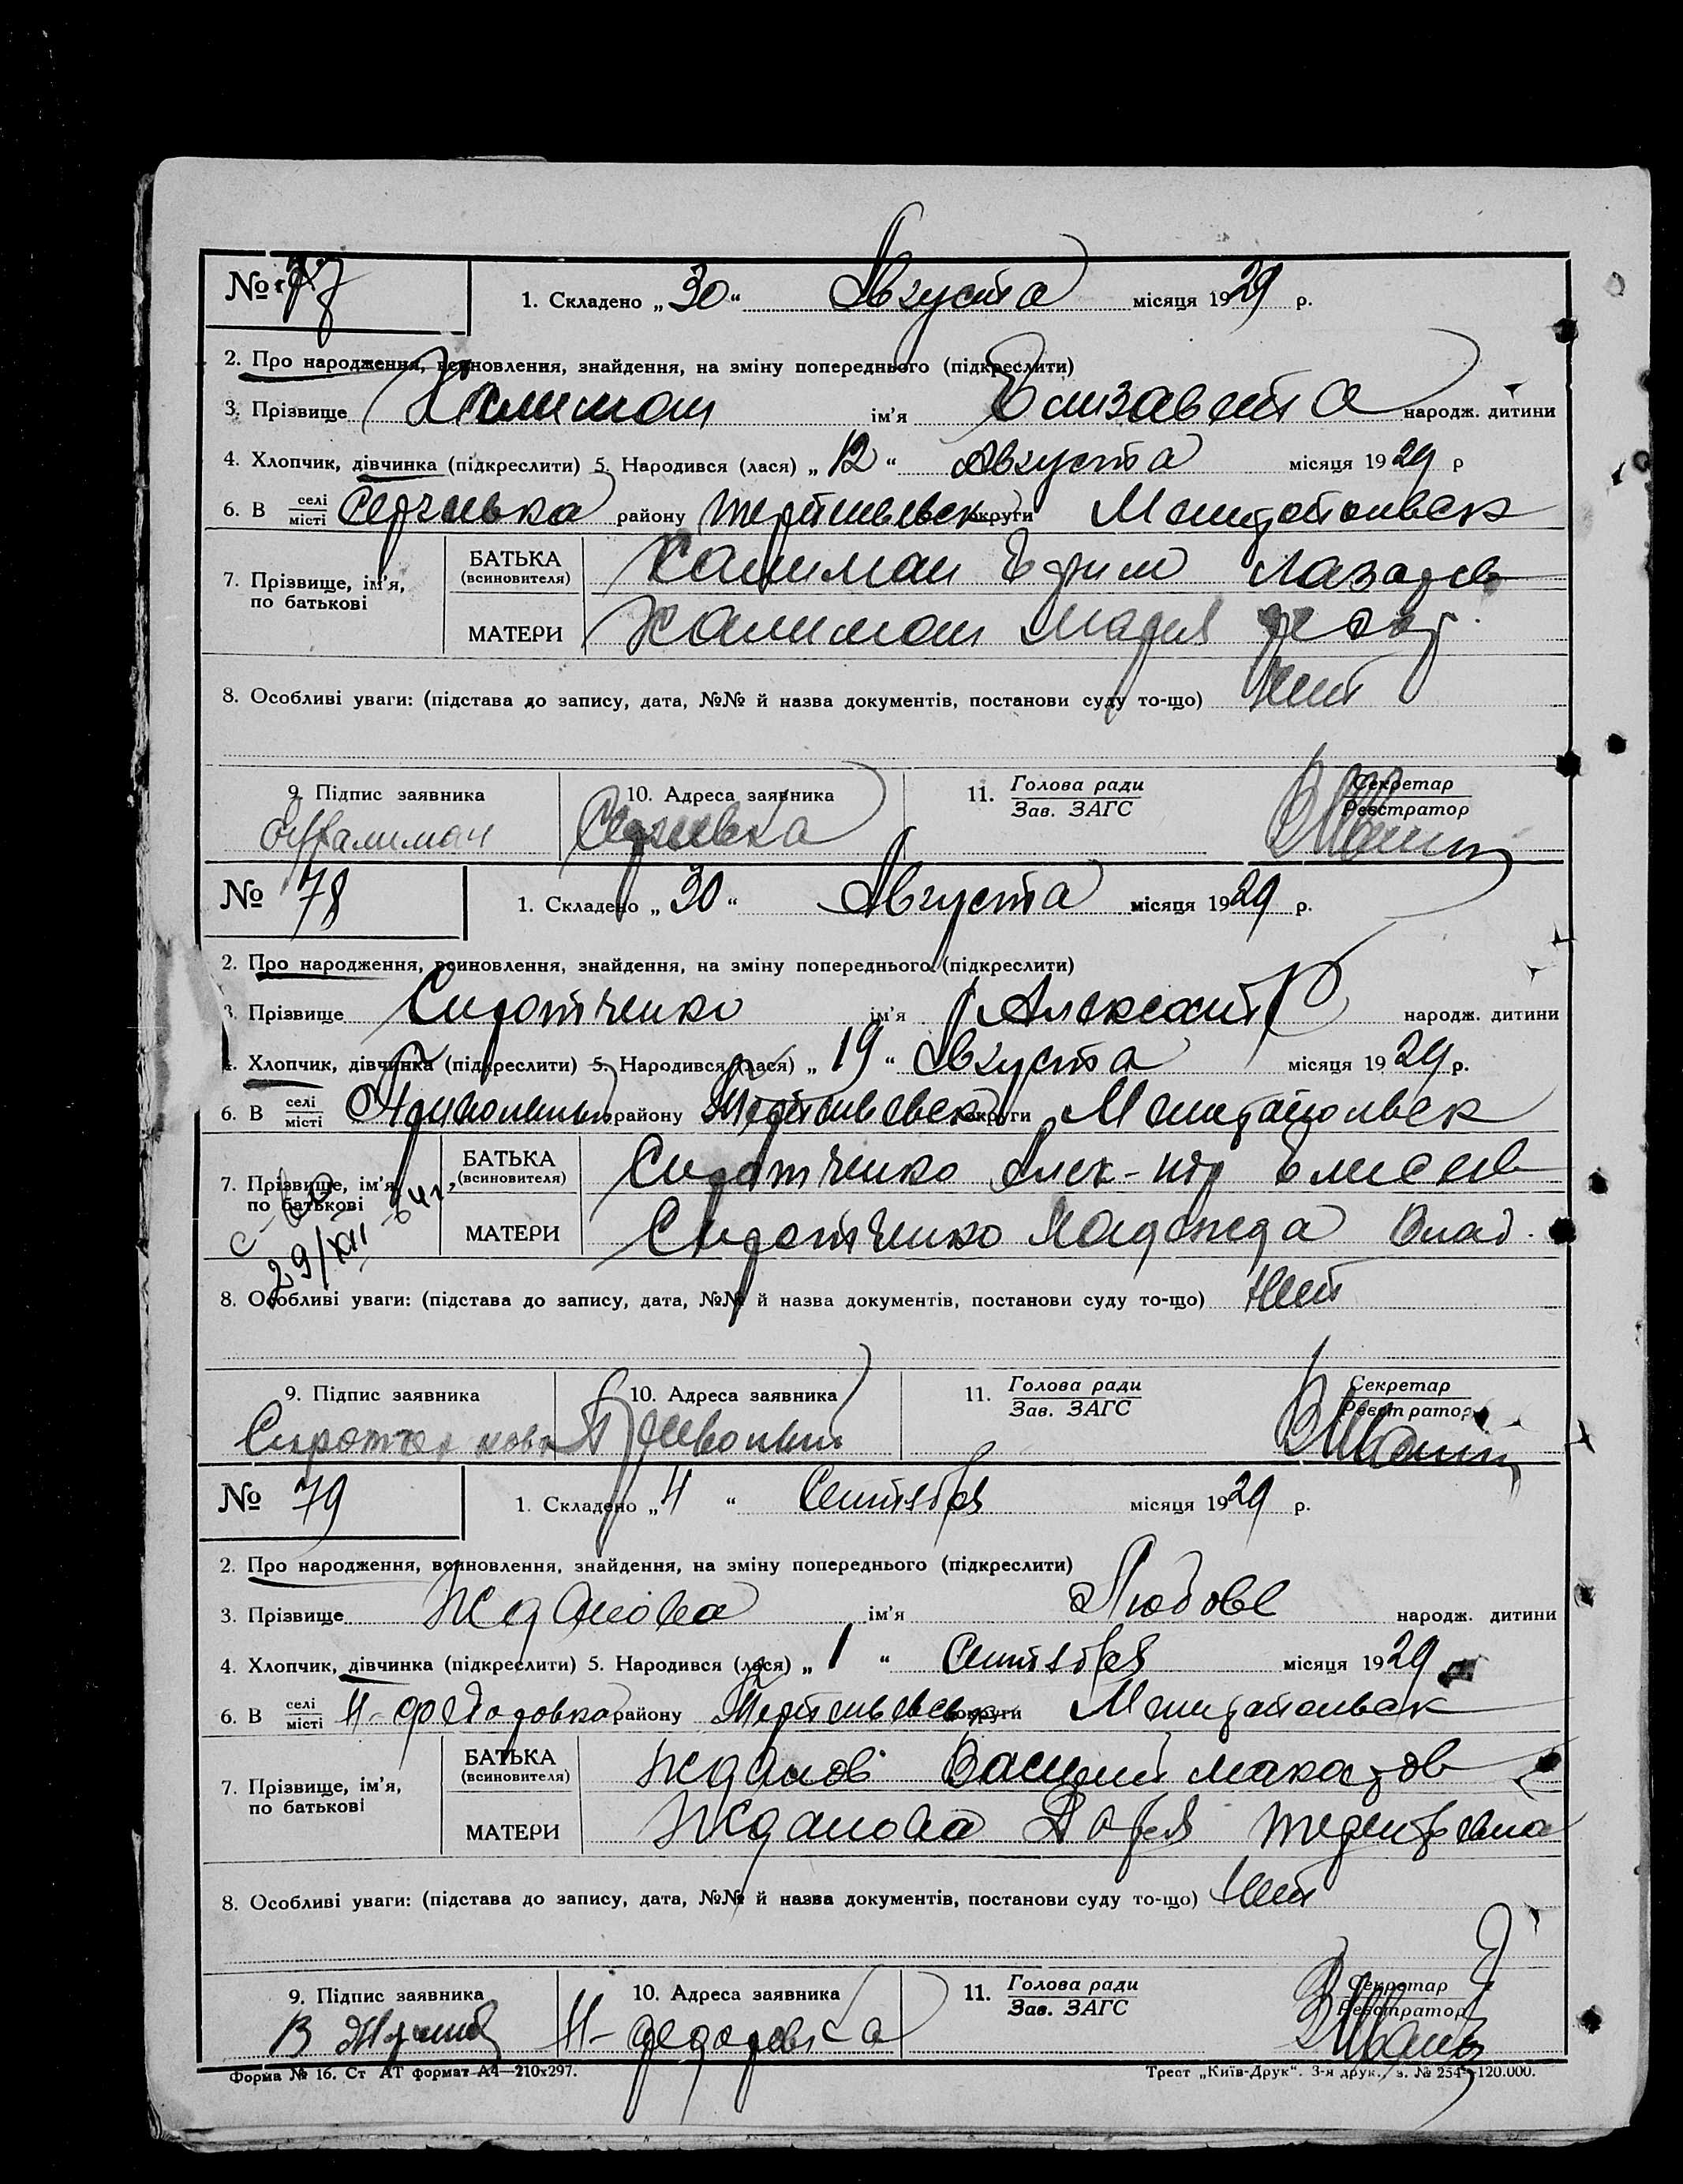 № 77 1. Складено „30“ Августа місяця 1929 р.
2. Про народження, всиновлення, знайдення, на зміну попереднього (підкреслити)
3. Прізвище Калиман ім'я Елизавета народж. дитини
4. Хлопчик, дівчинка (підкреслити) 5. Народився (лася) „12“ Августа місяця 1929 р
6. В селі місті Сергиевка району округи
7. Прізвище, ім'я, по батькові
БАТЬКА (всиновителя) Калиман Ефим Лазарев
МАТЕРИ Калиман Мария
8. Особливі уваги: (підстава до запису, дата, №№ й назва документів, постанови суду то-що) Нет
9. Підпис заявника 10. Адреса заявника 11. Голова ради Секретар
Зав. ЗАГС Реєстратор
Калиман Сергиевка
№ 78 1. Складено „30“ Августа місяця 1929 р.
2. Про народження, всиновлення, знайдення, на зміну попереднього (підкреслити)
3. Прізвище Сиротченко ім'я Александр народж. дитини
4. Хлопчик, дівчинка (підкреслити) 5. Народився (лася) „19“ Августа місяця 1929 р.
6. В селі місті району округи
7. Прізвище, ім'я, по батькові
БАТЬКА (всиновителя) Сиротченко Алек-ндр Елисеев
МАТЕРИ Сиротченко Надежда Влад.
29/XII
8. Особливі уваги: (підстава до запису, дата, №№ й назва документів, постанови суду то-що) Нет
9. Підпис заявника 10. Адреса заявника 11. Голова ради Секретар
Зав. ЗАГС Реєстратор
№ 79 1. Складено „4“ Сентября місяця 1929 р.
2. Про народження, всиновлення, знайдення, на зміну попереднього (підкреслити)
3. Прізвище Жданова ім'я Любовь народж. дитини
4. Хлопчик, дівчинка (підкреслити) 5. Народився (лася) „1“ Сентября місяця 1929
6. В селі місті Н-Федоровка району округи
7. Прізвище, ім'я, по батькові
БАТЬКА (всиновителя) Жданов Василий Макаров
МАТЕРИ Жданова Дарья Терентьевна
8. Особливі уваги: (підстава до запису, дата, №№ й назва документів, постанови суду то-що) Нет
9. Підпис заявника 10. Адреса заявника 11. Голова ради Секретар
Зав. ЗАГС Реєстратор
В Жданов Н-Федоровка
Форма № 16. Ст АТ формат А4—210х297. Трест „Київ-Друк“. 3-я друк., з. № 254—120.000.